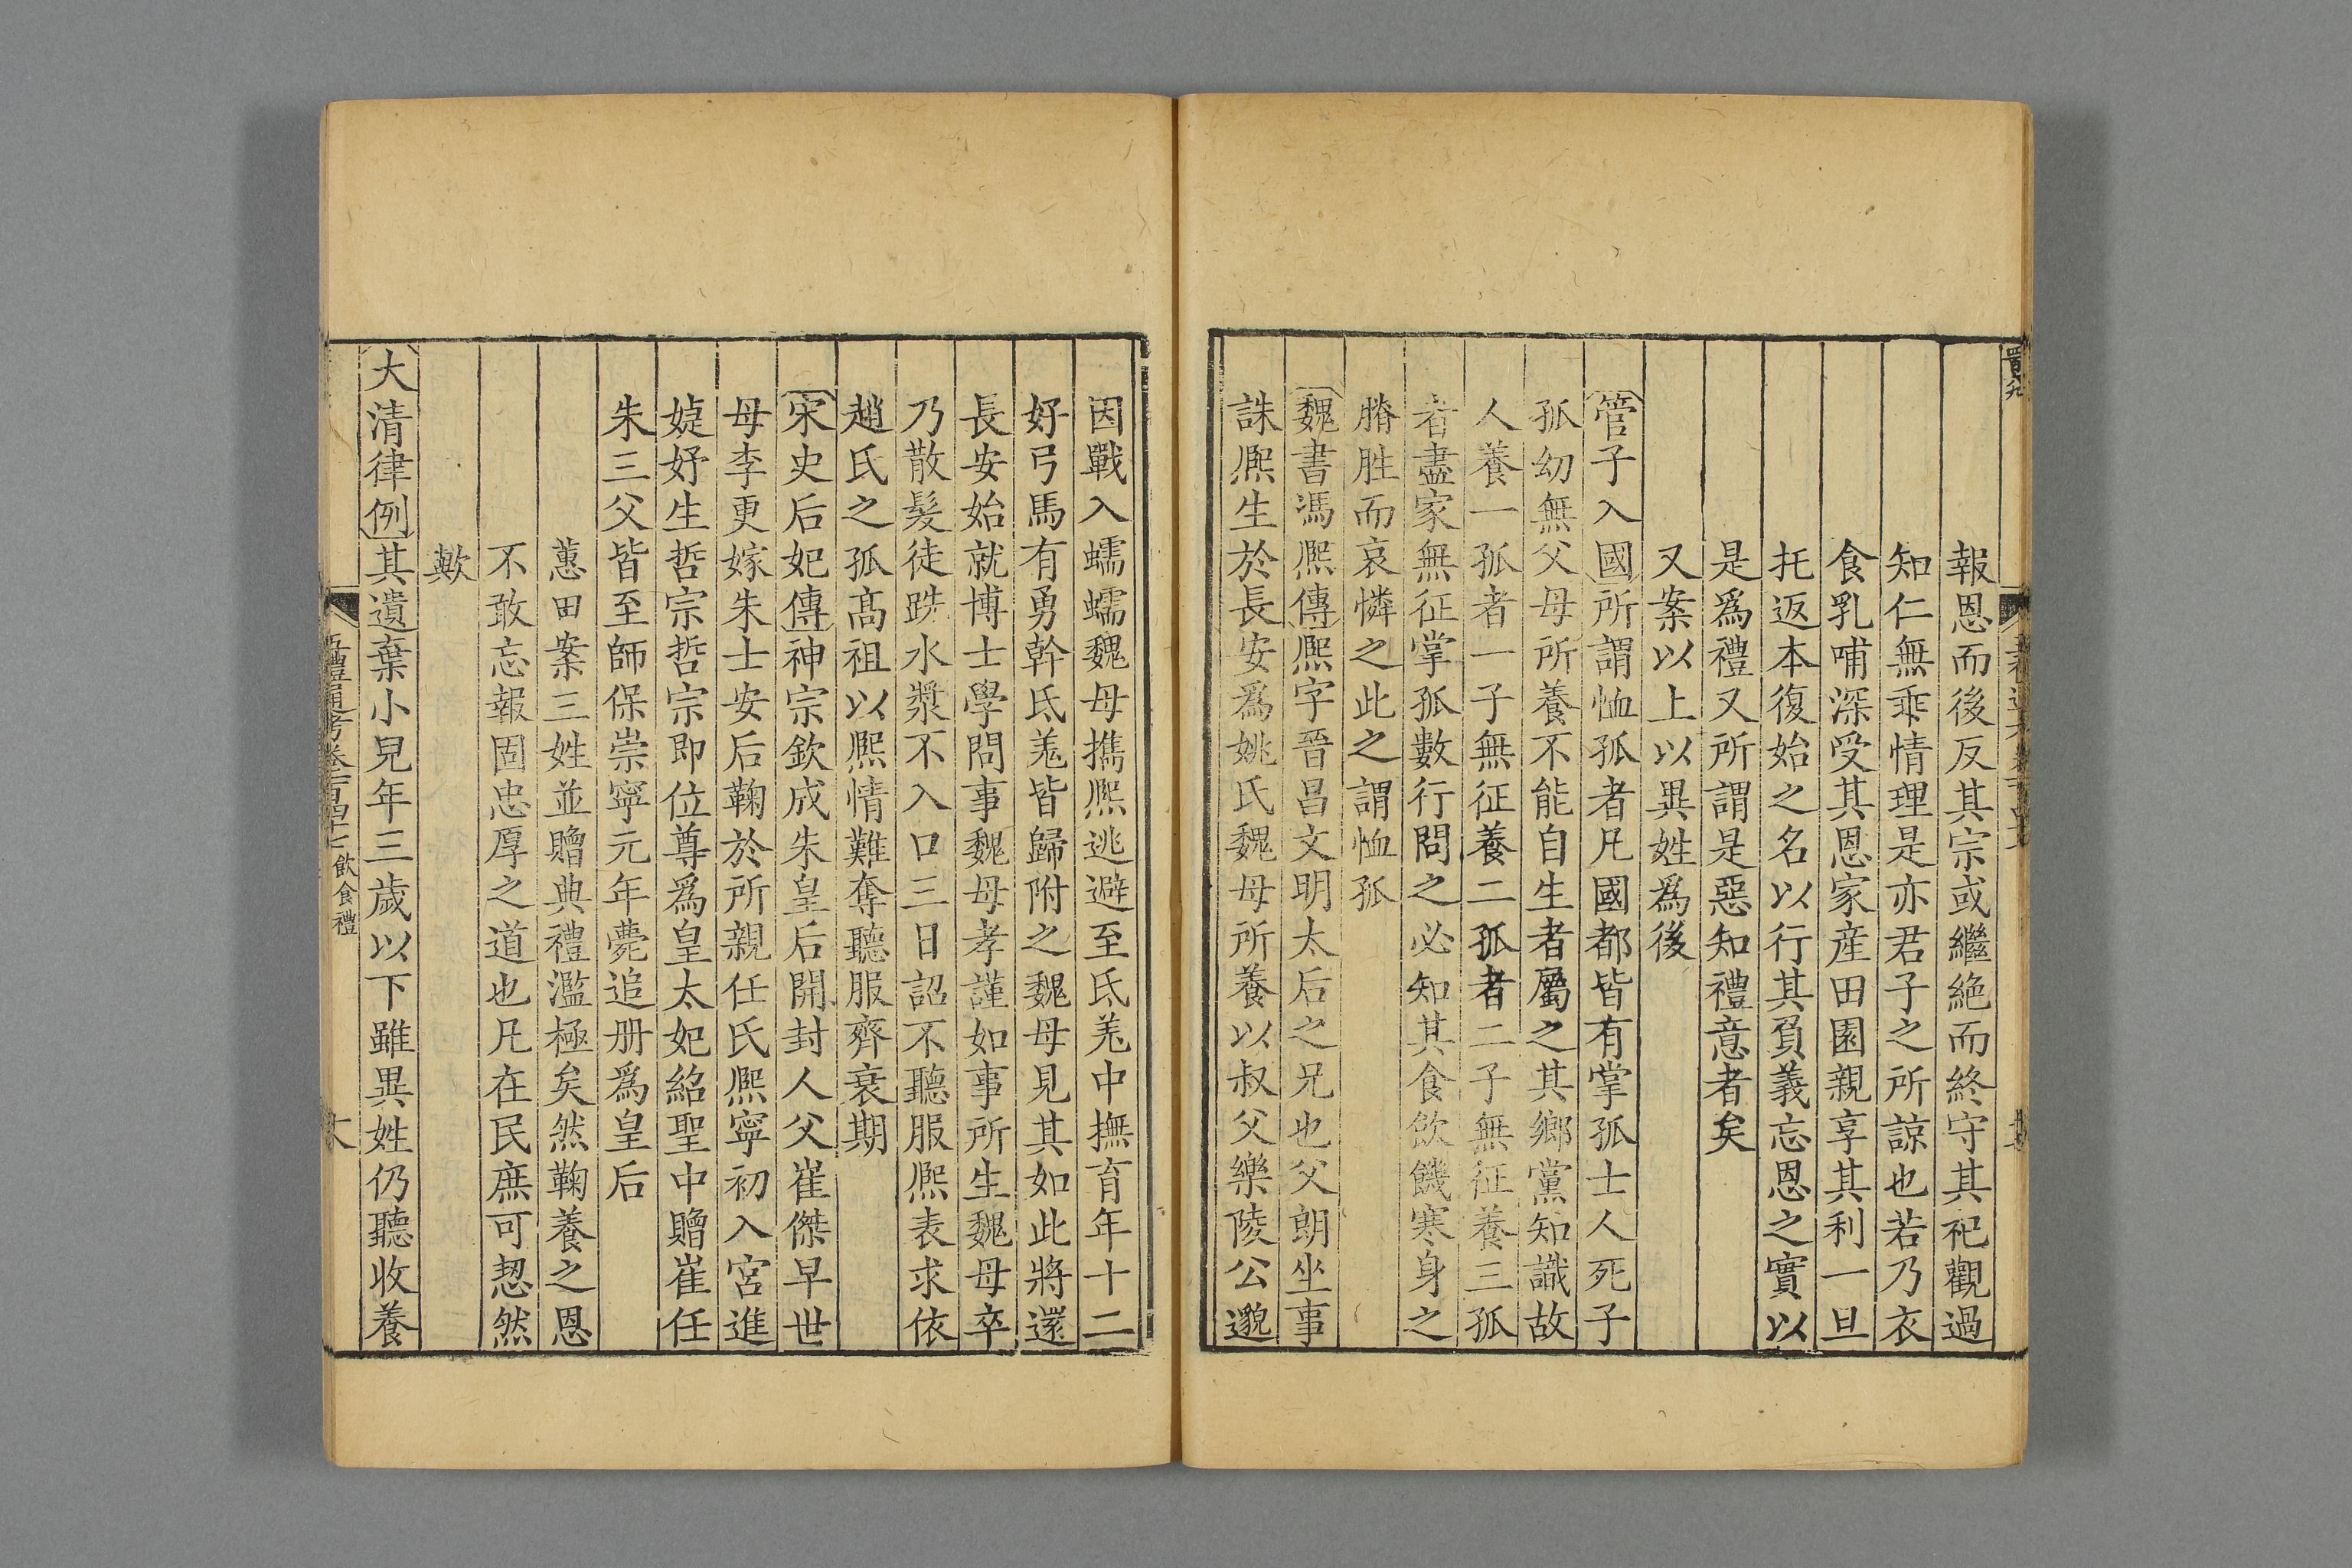 報恩而後反其宗或繼絶而終守其祀觀過
知仁無乖情理是亦君子之所諒也若乃衣
食乳哺深受其恩家産田園親享其利一旦
托返本復始之名以行其負義忘恩之實以
是爲禮又所謂是惡知禮意者矣
又案以上以異姓爲後
管子入國所謂恤孤者凡國都皆有掌孤士人死子
孤幼無父母所養不能自生者屬之其鄉黨知識故
人養一孤者一子無征養二孤者二子無征養三孤
者盡家無征掌孤數行問之必知其食飲饑寒身之
膌胜而哀憐之此之謂恤孤
魏書馮熈傳熈字晉昌文明太后之兄也父朗坐事
誅熈生於長安爲姚氏魏母所養以叔父樂陵公邈
因戰入蠕蠕魏母攜熈逃避至氐羌中撫育年十二
好弓馬有勇幹氐羌皆歸附之魏母見其如此將還
長安始就博士學問事魏母孝謹如事所生魏母卒
乃散髮徒跣水漿不入口三日詔不聽服熈表求依
趙氏之孤高祖以熈情難奪聽服齊衰期
宋史后妃傳神宗欽成朱皇后開封人父崔傑早世
母李更嫁朱士安后鞠於所親任氏熈寧初入宮進
婕妤生哲宗哲宗即位尊爲皇太妃紹聖中贈崔任
朱三父皆至師保崇寧元年薨追册爲皇后
蕙田案三姓並贈典禮濫極矣然鞠養之恩
不敢忘報固忠厚之道也凡在民庶可恝然
歟
大清律例其遺棄小兒年三歲以下雖異姓仍聽收養
五禮通考卷一百四十七 飲食禮